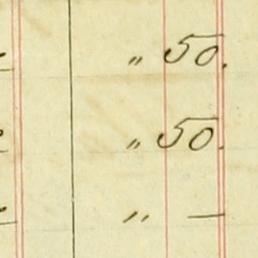 " 50.
" 50.
" —